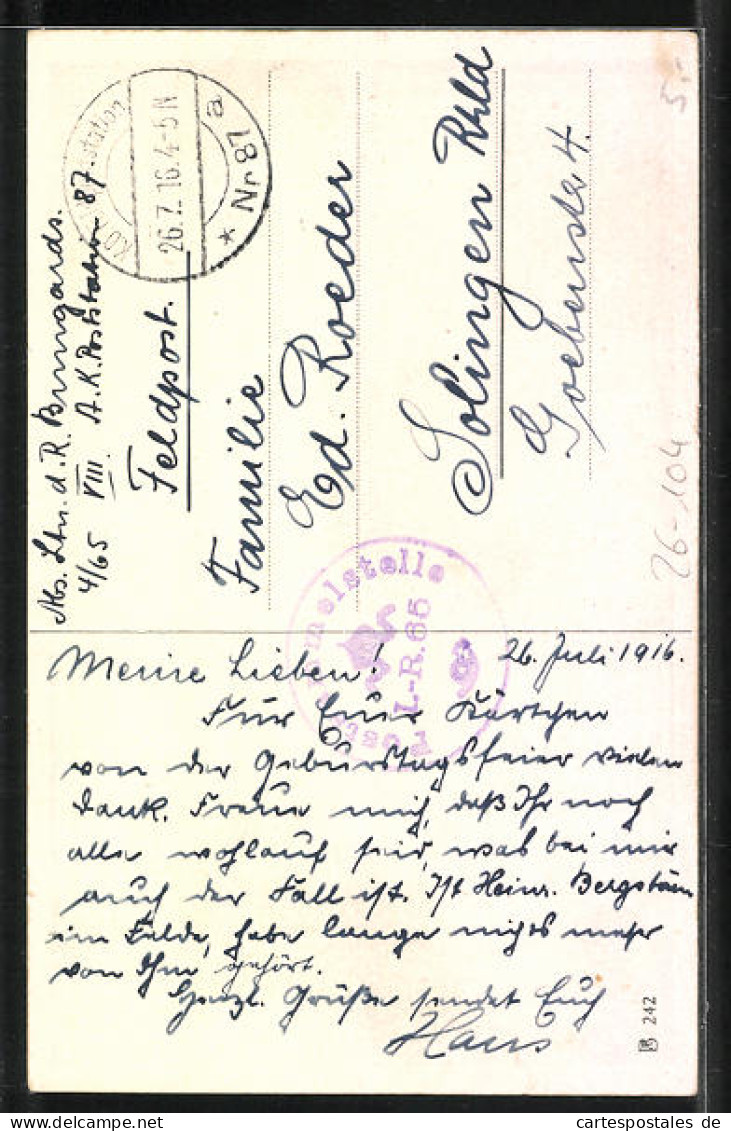 Abs. Ltn. d. R. Bungards.
4/65 VIII. A. K. Poststation 87.
station
26.7.16.4-5 N
* Nr 87 a
Feldpost.
Familie
Ed. Roeder
Solingen Rhld
Goebenstr. 4.
5.-
26-104
I.-R. 65
26. Juli 1916.
Meine Lieben!
Für Euer Kärtchen
von der Geburtstagsfeier vielen
Dank. Freue mich, daß Ihr noch
alle wohlauf seid, was bei mir
auch der Fall ist. Ist Heinr.
im Felde, habe lange nichts mehr
von Ihm gehört.
Herzl. Grüße sendet Euch
Hans
242
cartespostales.de